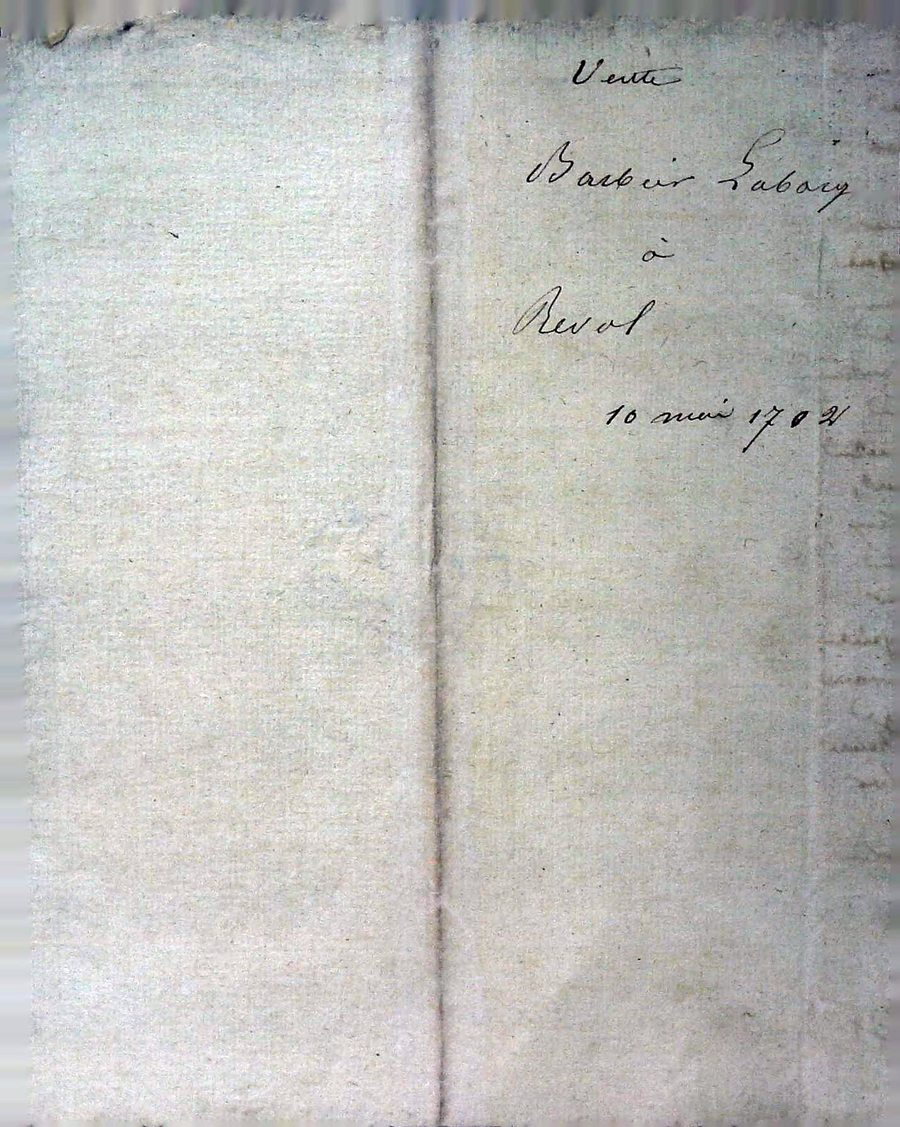 Vente
Barbier Labarg
à
Revol
10 mai 1702